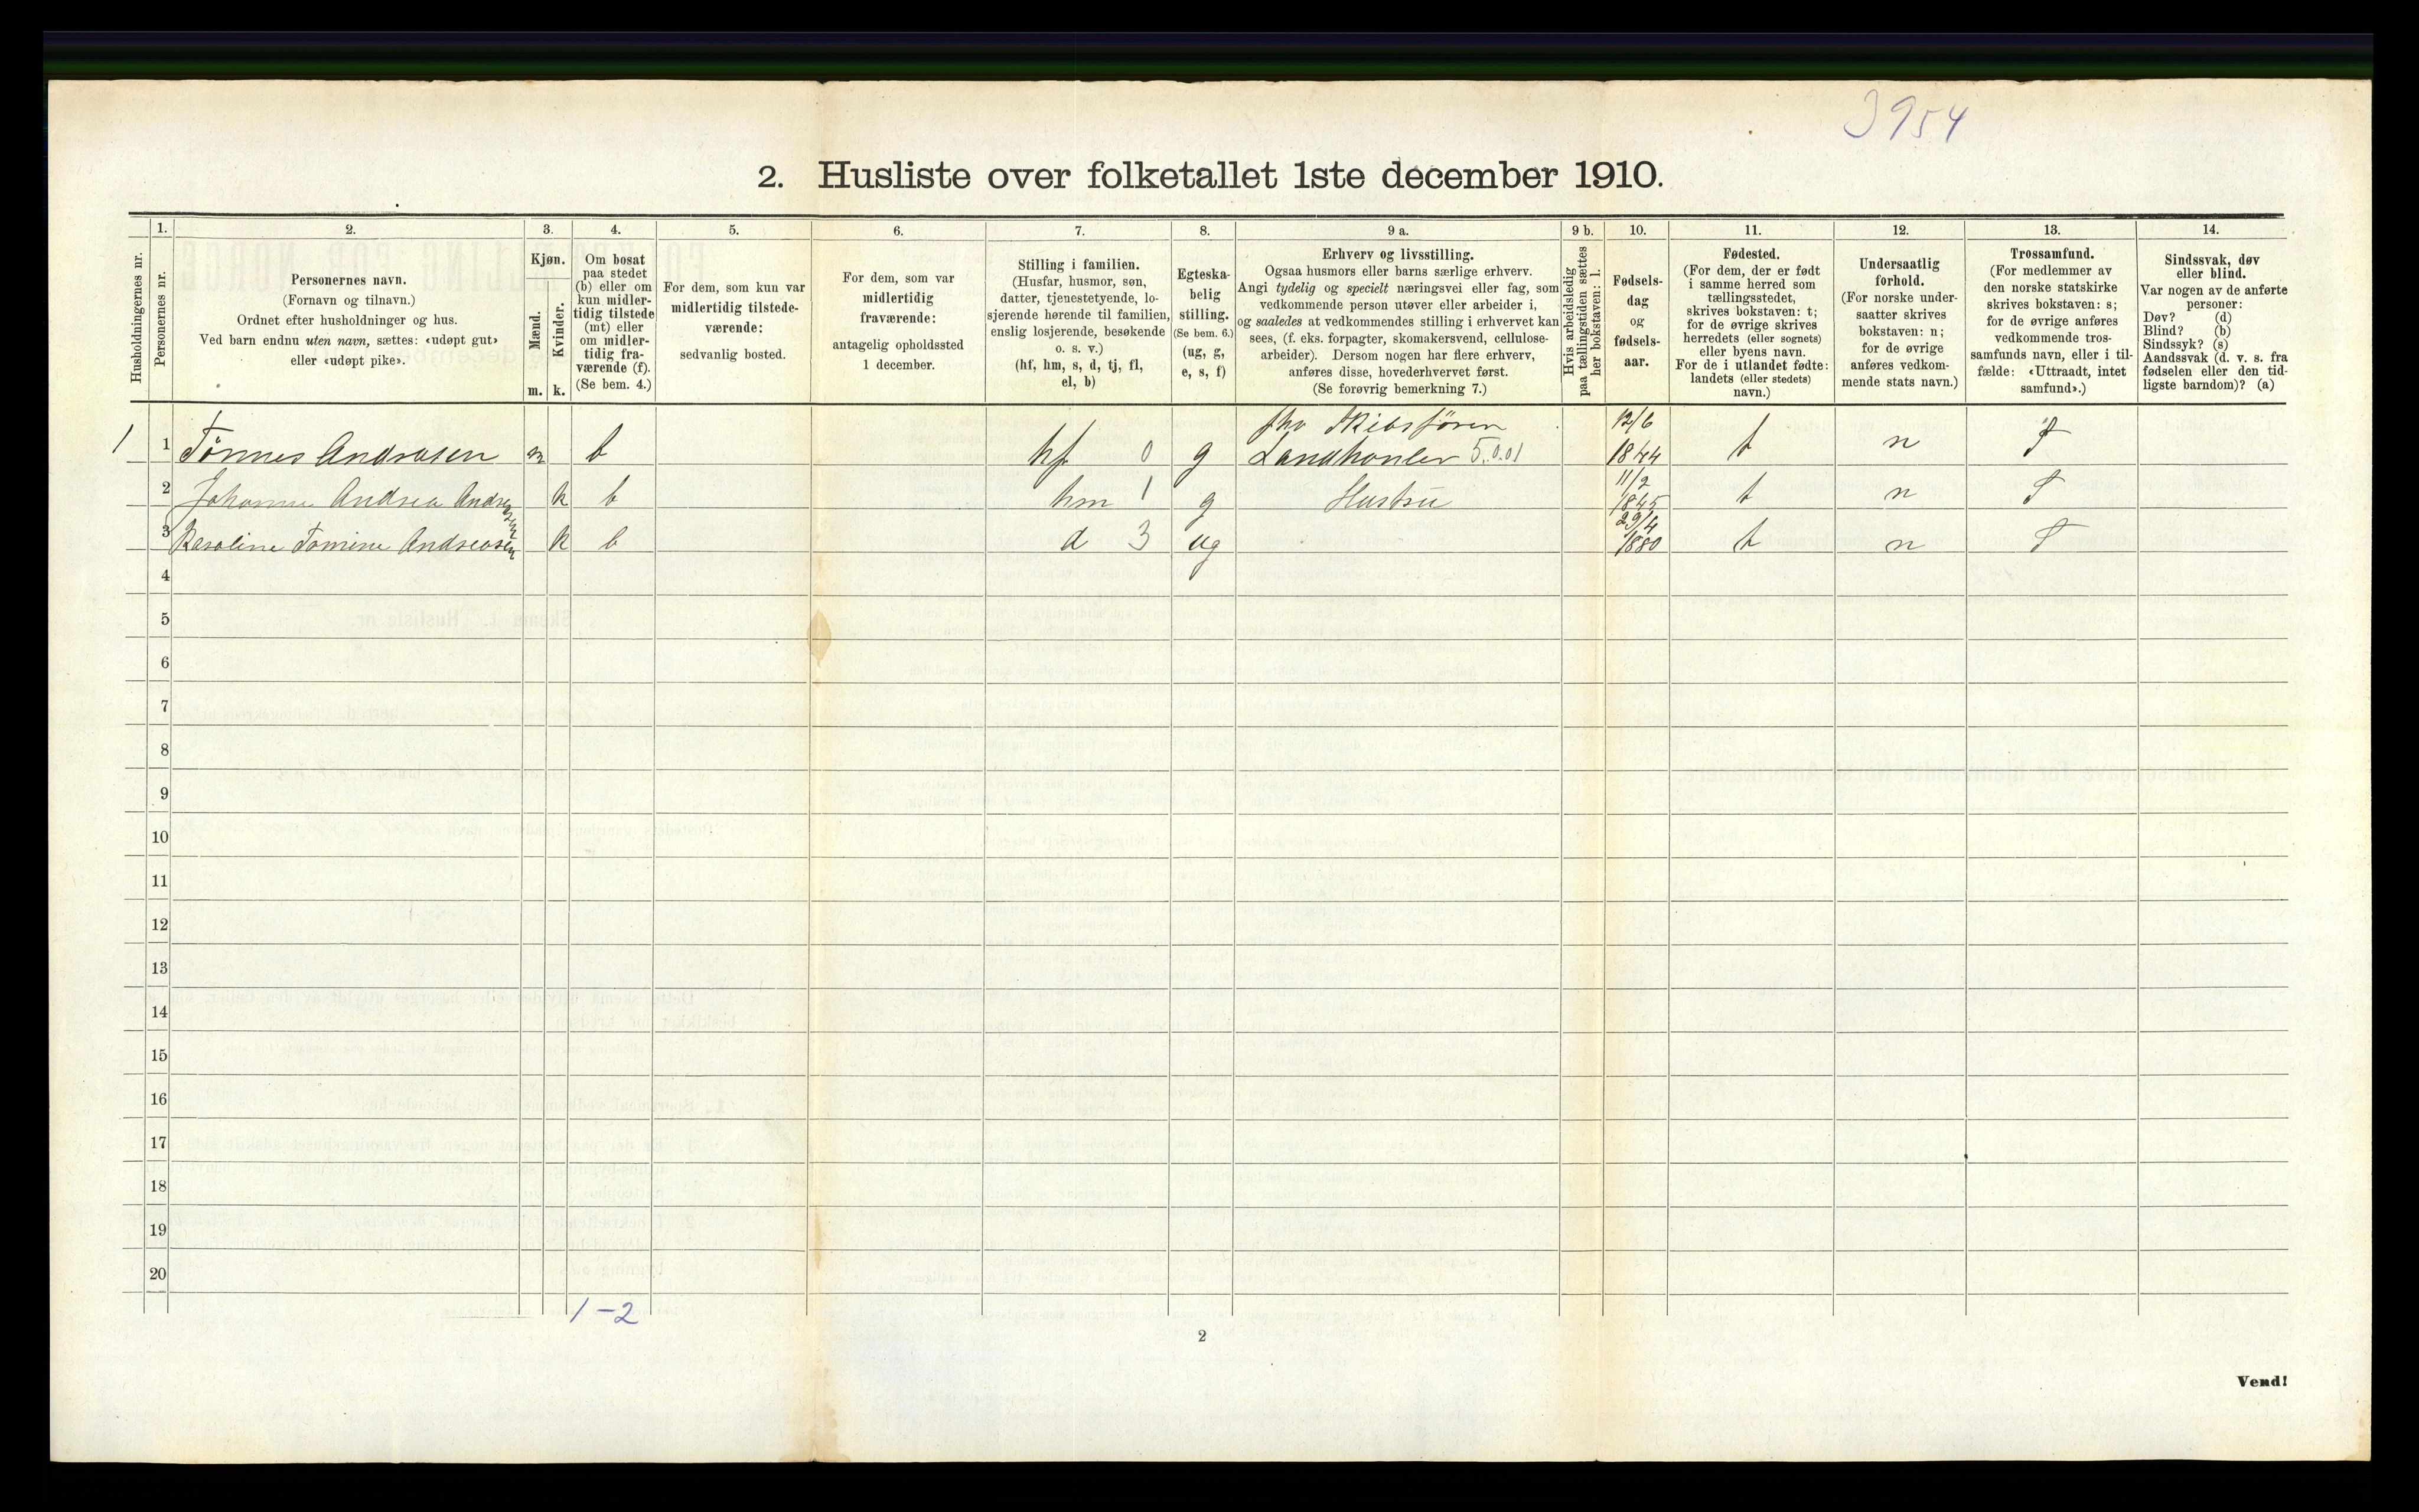 3954
2. Husliste over folketallet 1ste december 1910.
Husholdningernes nr.
1.
Personernes nr.
2.
Personernes navn.
(Fornavn og tilnavn.)
Ordnet efter husholdninger og hus.
Ved barn endnu uten navn, sættes: «udøpt gut»
eller «udøpt pike».
3.
Kjøn.
Mænd.
m.
Kvinder.
k.
4.
Om bosat
paa stedet
(b) eller om
kun midler-
tidig tilstede
(mt) eller
om midler-
tidig fra-
værende (f).
(Se bem. 4.)
5.
For dem, som kun var
midlertidig tilstede-
værende:
sedvanlig bosted.
6.
For dem, som var
midlertidig
fraværende:
antagelig opholdssted
1 december.
7.
Stilling i familien.
(Husfar, husmor, søn,
datter, tjenestetyende, lo-
sjerende hørende til familien,
enslig losjerende, besøkende
o. s. v.)
(hf, hm, s, d, tj, fl,
el, b)
8.
Egteska-
belig
stilling.
(Se bem. 6.)
(ug, g,
e, s, f)
9 a.
Erhverv og livsstilling.
Ogsaa husmors eller barns særlige erhverv.
Angi tydelig og specielt næringsvei eller fag, som
vedkommende person utøver eller arbeider i,
og saaledes at vedkommendes stilling i erhvervet kan
sees, (f. eks. forpagter, skomakersvend, cellulose-
arbeider). Dersom nogen har flere erhverv,
anføres disse, hovederhvervet først.
(Se forøvrig bemerkning 7.)
9 b.
Hvis arbeidsledig
paa tællingstiden sættes
her bokstaven: l.
10.
Fødsels-
dag
og
fødsels-
aar.
11.
Fødested.
(For dem, der er født
i samme herred som
tællingsstedet,
skrives bokstaven: t;
for de øvrige skrives
herredets (eller sognets)
eller byens navn.
For de i utlandet fødte:
landets (eller stedets)
navn.)
12.
Undersaatlig
forhold.
(For norske under-
saatter skrives
bokstaven: n;
for de øvrige
anføres vedkom-
mende stats navn.)
13.
Trossamfund.
(For medlemmer av
den norske statskirke
skrives bokstaven: s;
for de øvrige anføres
vedkommende tros-
samfunds navn, eller i til-
fælde: «Uttraadt, intet
samfund».)
14.
Sindssvak, døv
eller blind.
Var nogen av de anførte
personer:
Døv? (d)
Blind? (b)
Sindssyk? (s)
Aandssvak (d. v. s. fra
fødselen eller den tid-
ligste barndom)? (a)
1 1 Tønnes Andreasen m b hf 0 g fhv Skibsfører Landhanler 5.0.01 12/6 1844 t n
2 Johanne Andrea Andreasen k b hm 1 g Hustru 11/2 1845 t n
3 Karoline Tomine Andreasen k b d 3 ug 29/4 1880 t n
4
5
6
7
8
9
10
11
12
13
14
15
16
17
18
19
20
1-2
2
Vend!